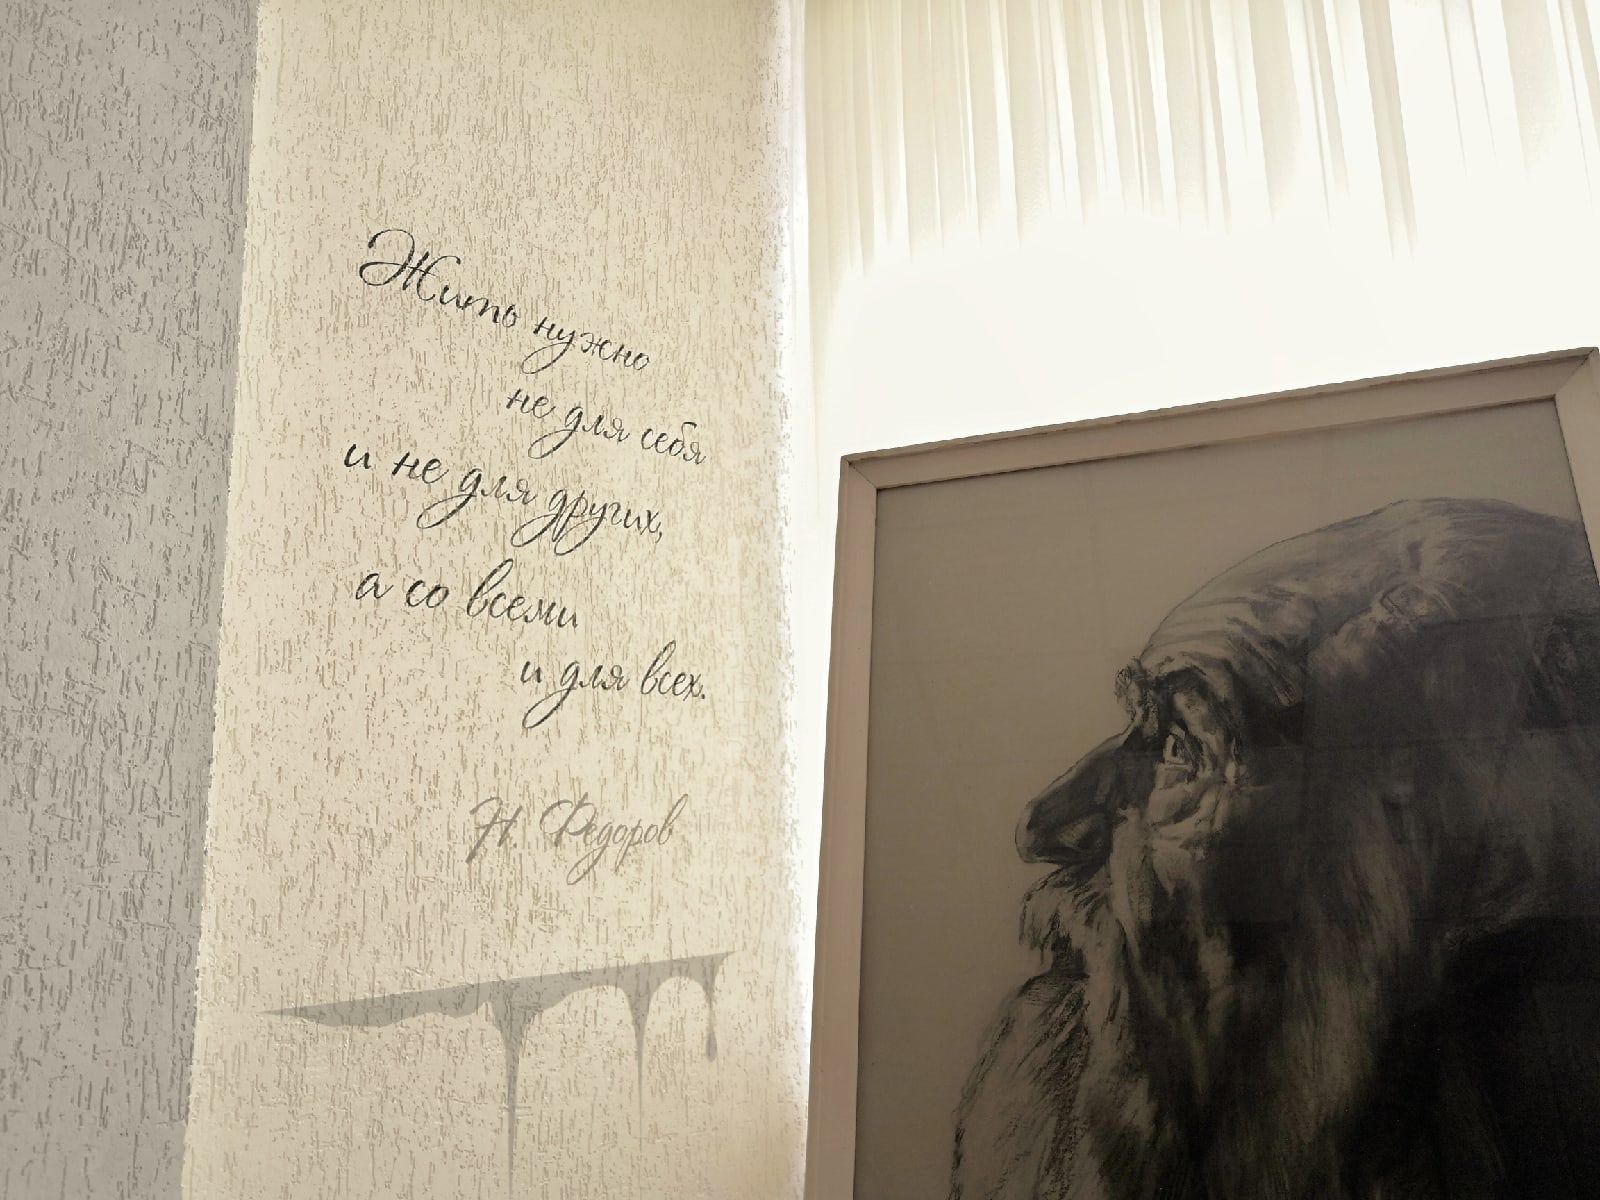 Жить нужно
не для себя
и не для других,
а со всеми
и для всех.
Н. Федоров